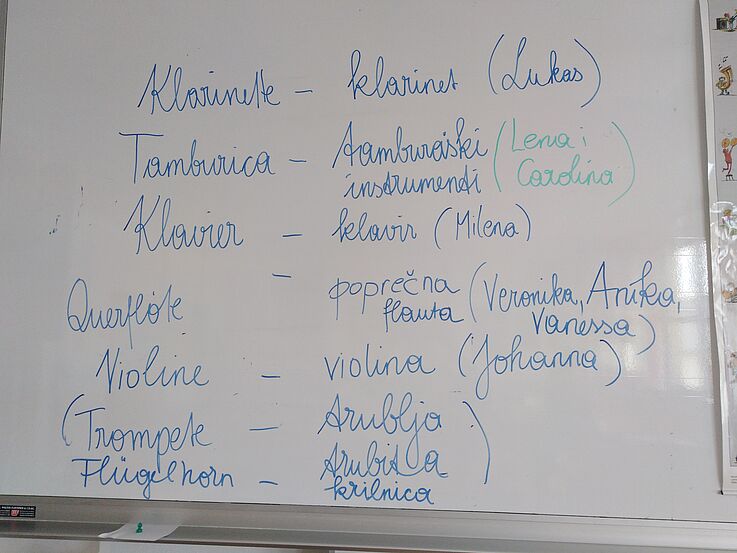 Klarinette – klarinet (Lukas)
Tamburica – tamburaški (Lena i
instrumenti Carolina)
Klavier – klavir (Milena)
Querflöte – poprečna (Veronika, Anika,
flauta Vanessa)
Violine – violina (Johanna)
(Trompete – trublja
Flügelhorn – trubica
krilnica)